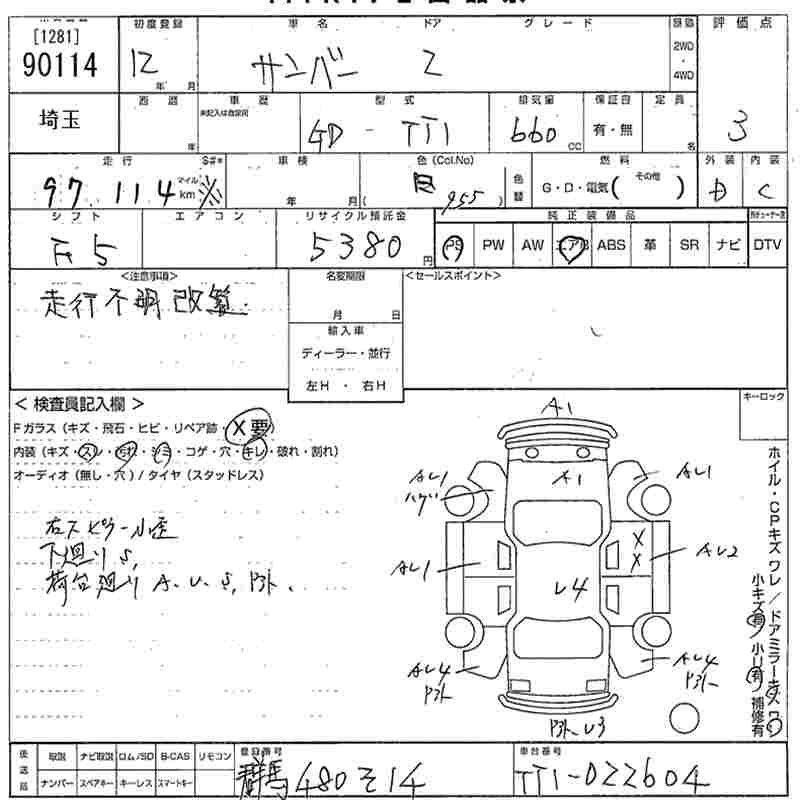 [1281] 初度登録 車名 ドア グレード 原価 評価点
90114 12 年 月 サンバー 2 2WD・4WD
埼玉 西暦 年 車歴 未記入は自家用 型式 GD - TT1 排気量 660 cc 保証書 有・無 定員 名 3
走行 $#* 車検 色(Col.No) 燃料 外装 内装
97.114 マイル km ※ 年 月 ( 955 ) 色替 G・D・電気( その他 ) D C
シフト エアコン リサイクル預託金 純正装備品
F5 5380 円 PS PW AW エアB ABS 革 SR ナビ DTV
<注意事項> 名変期限 <セールスポイント>
走行不明 改算
月 日
輸入車
ディーラー・並行
左H ・ 右H
＜ 検査員記入欄 ＞ キーロック
Fガラス (キズ・飛石・ヒビ・リペア跡・X要)
内装 (キズ・スレ・汚れ・シミ・コゲ・穴・キレ・破れ・割れ)
オーディオ (無し・穴) / タイヤ (スタッドレス)
右スピラー小歪
下廻りS,
荷台廻り A.U.S,
A1
A1
AU1
AU1
AU1
X X
AU2
U4
AU4
AU4
U3
ホイル・CPキズ ワレ／ドアミラーキズ ワレ
小キズ有 小U有 補修有
後送品 取説 ナビ取説 ロム/SD B-CAS リモコン 登録番号 車台番号
ナンバー スペアキー キーレス スマートキー 群馬 480そ14 TT1-022604